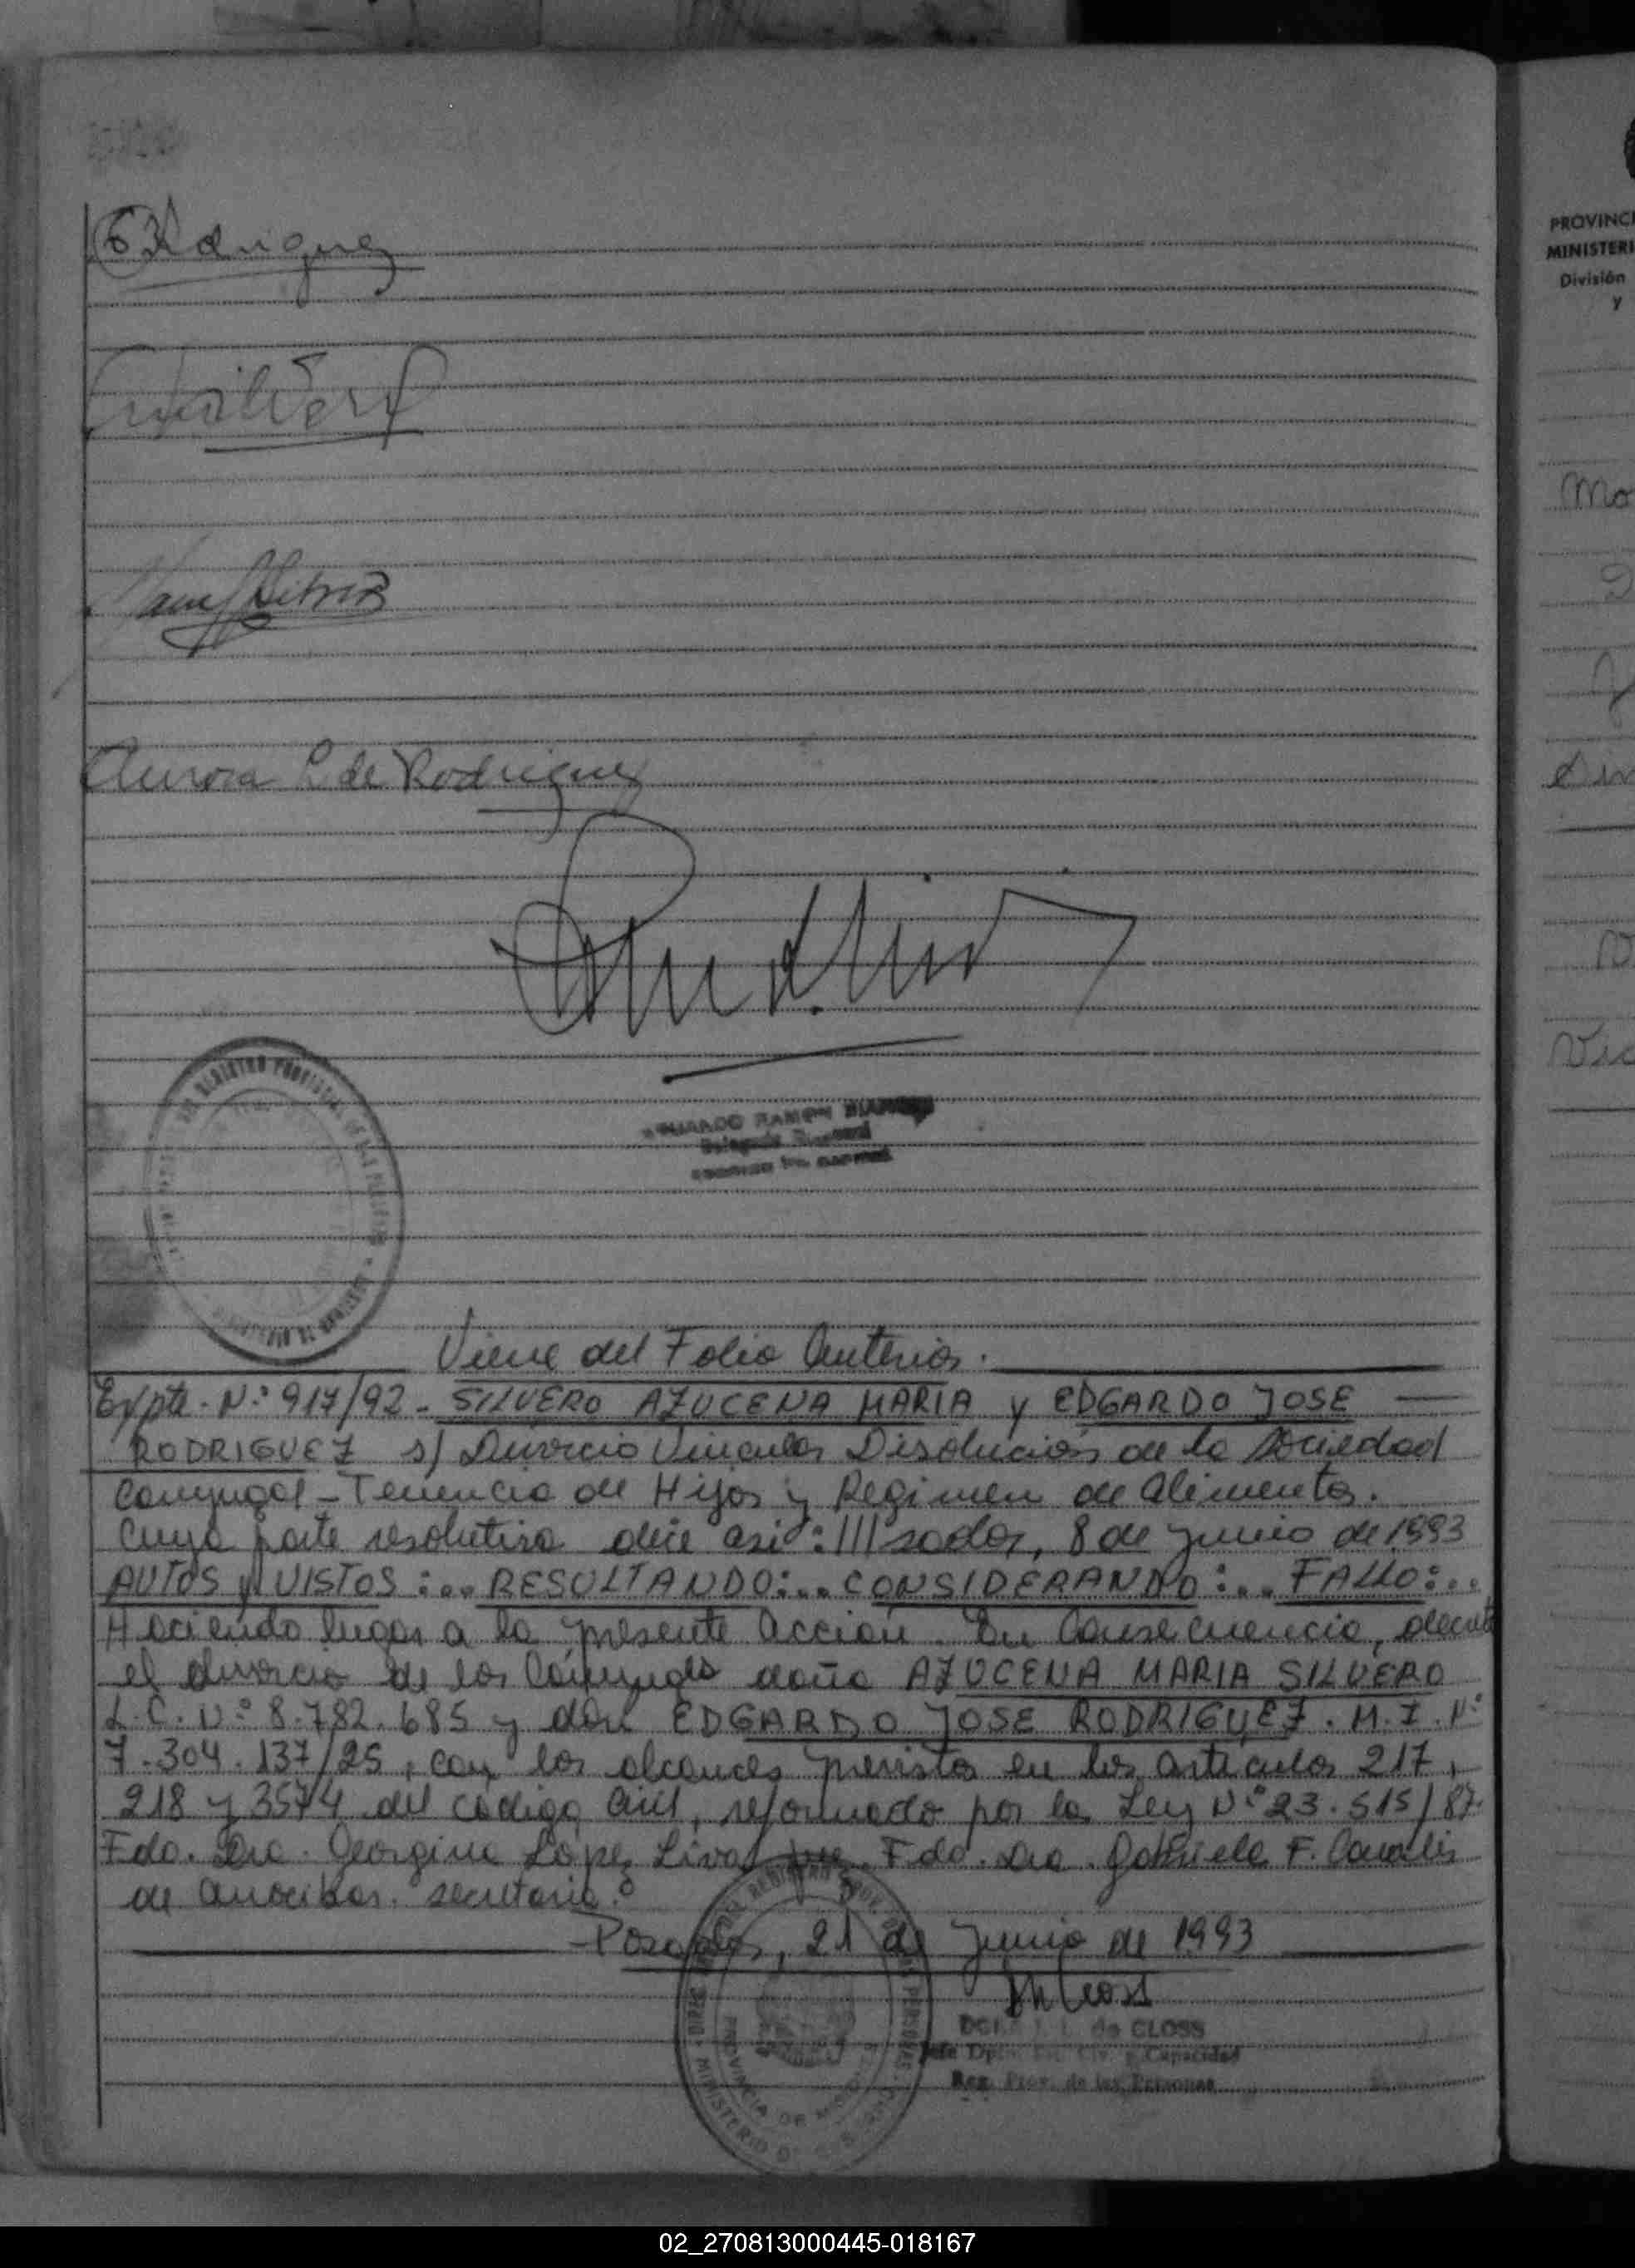 Rodriguez
Aurora L de Rodriguez
Viene del Folio Anterior.
Expte. N° 917/92 - SILVERO AZUCENA MARIA y EDGARDO JOSE
RODRIGUEZ s/ Divorcio Vincular Disolución de la Sociedad
Conyugal - Tenencia de Hijos y Regimen de Alimentos.
Cuya parte resolutiva dice asi: ///sadas, 8 de Junio de 1993
AUTOS y VISTOS:... RESULTANDO:... CONSIDERANDO:... FALLO:..
Haciendo lugar a la presente acción. En Consecuencia, decreto
el divorcio de los Cónyuges doña AZUCENA MARIA SILVERO
L.C. N° 8.782.685 y don EDGARDO JOSE RODRIGUEZ. M.I. N°
7.304.137/25, con los alcances previstos en los articulos 217,
218 y 3574 del código Civil, reformado por la Ley N° 23.515/87.
Fdo. Dra. Georgina López Liva Fdo. Dra. Gabriela F. Canalis
de secretaria.
Posadas, 21 de Junio de 1993
de CLOSS
Capacidad
Reg. Prov. de las Personas
PROVINC
MINISTERI
División
y
Mo
02_270813000445-018167